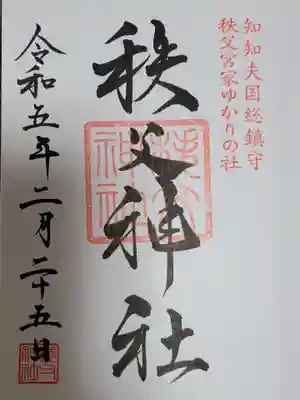 知知夫国総鎮守
秩父宮家ゆかりの社
秩父神社
令和五年二月二十五日
秩父神社